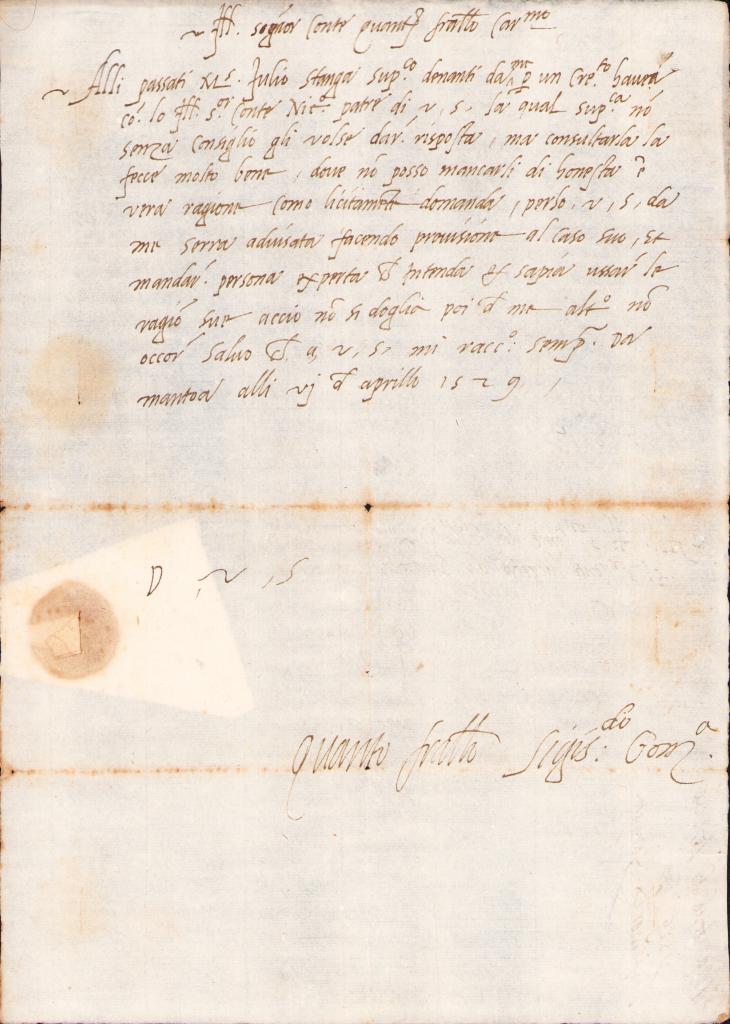 ~ Ill. segior Conte quant. fratello Car.mo
~ Alli passati M.s Julio Stanga sup.co denanti da me p un Cre.to haveá
có. lo Ill. s.or Conte Nic.o patre di v, s, la qual sup.ca nó
senza Consiglio gli volse dar. risposta, ma consultarla la
fecce molto bene, dove nó posso mancarli di honesta é
vera ragione Como licitamte domanda, perso, v, s, da
me serra advisata facendo provisióne al caso suo, et
mandar. persona experta ch intenda et sapia ussar le
ragió sue accio nó si doglia poi d me alt.o nó
occor. salvo ch. a, v, s, mi racc.o: semp. Da
mantoa alli vj d aprillo 1529,
D, v, S
Quanto fratello Sigis.do: Gonz.a.